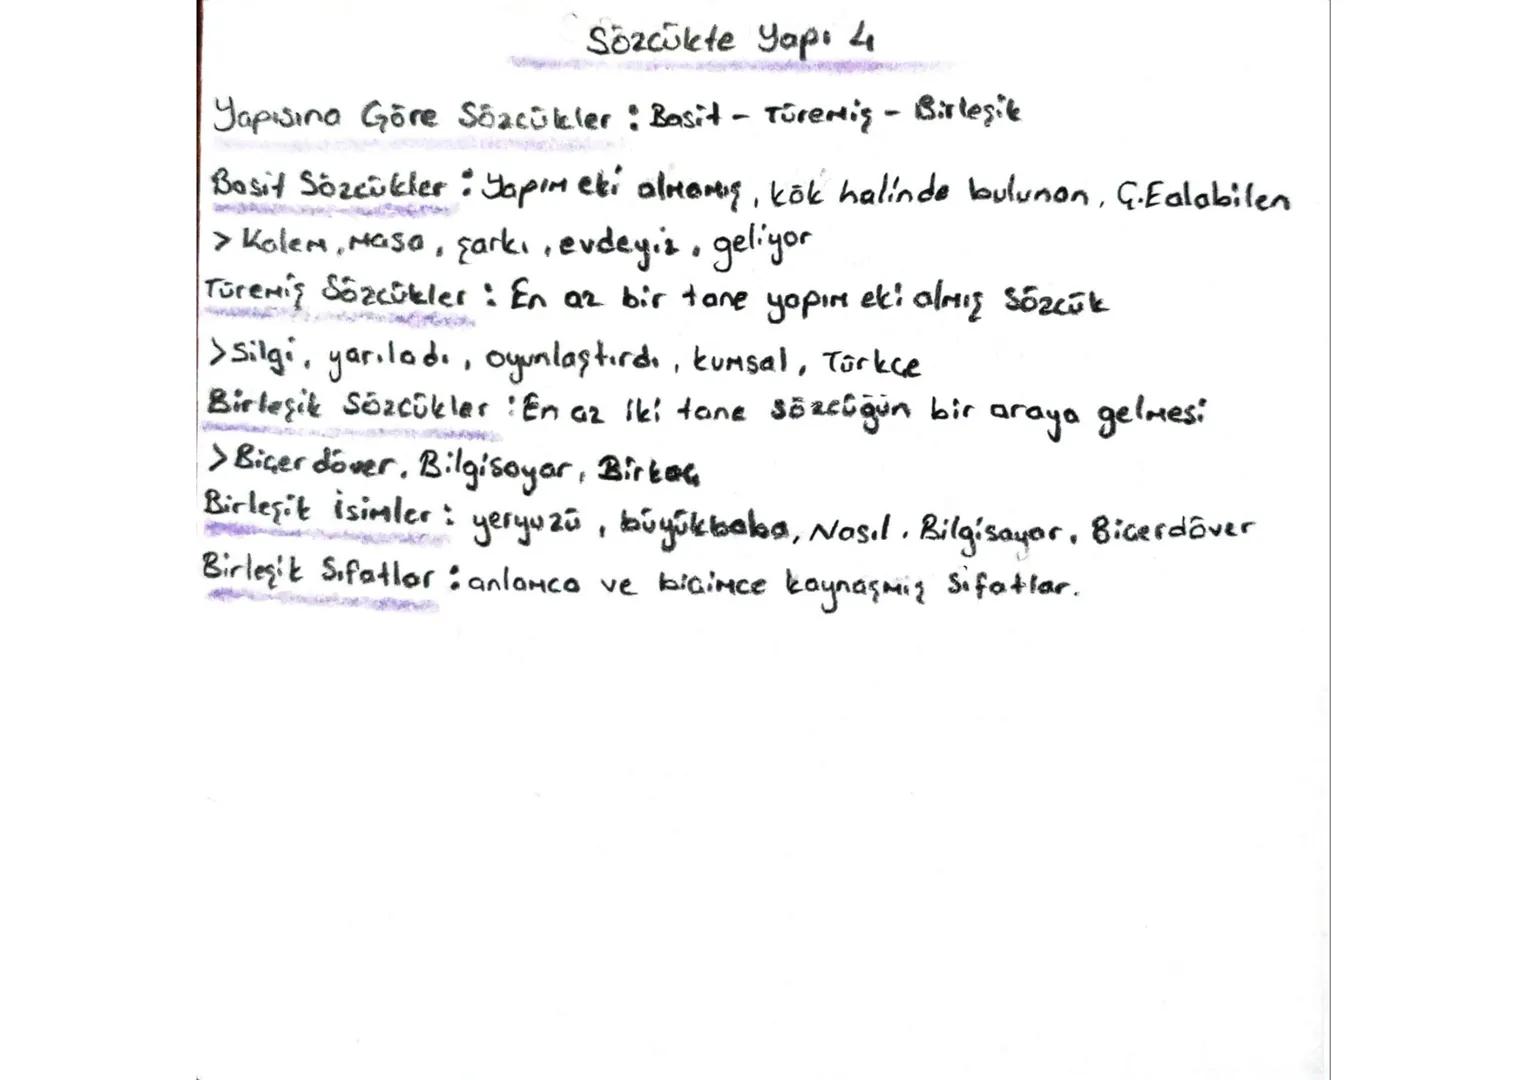 Sözcükte Yapı 4
Yapısına Göre Sözcükler : Basit - Türemiş - Birleşik
Basit Sözcükler : Yapım eki almamış, kök halinde bulunan, Ç.E alabilen
> Kalem, Masa, şarkı, evdeyiz, geliyor
Türemiş Sözcükler : En az bir tane yapım eki almış Sözcük
> Silgi, yarıladı, oyunlaştırdı, kumsal, Türkçe
Birleşik Sözcükler : En az iki tane sözcüğün bir araya gelmesi
> Biçer döver, Bilgisayar, Birkaç
Birleşik isimler : yeryüzü, büyükbaba, Nasıl, Bilgisayar, Biçerdöver
Birleşik Sıfatlar : anlamca ve biçimce kaynaşmış Sıfatlar.